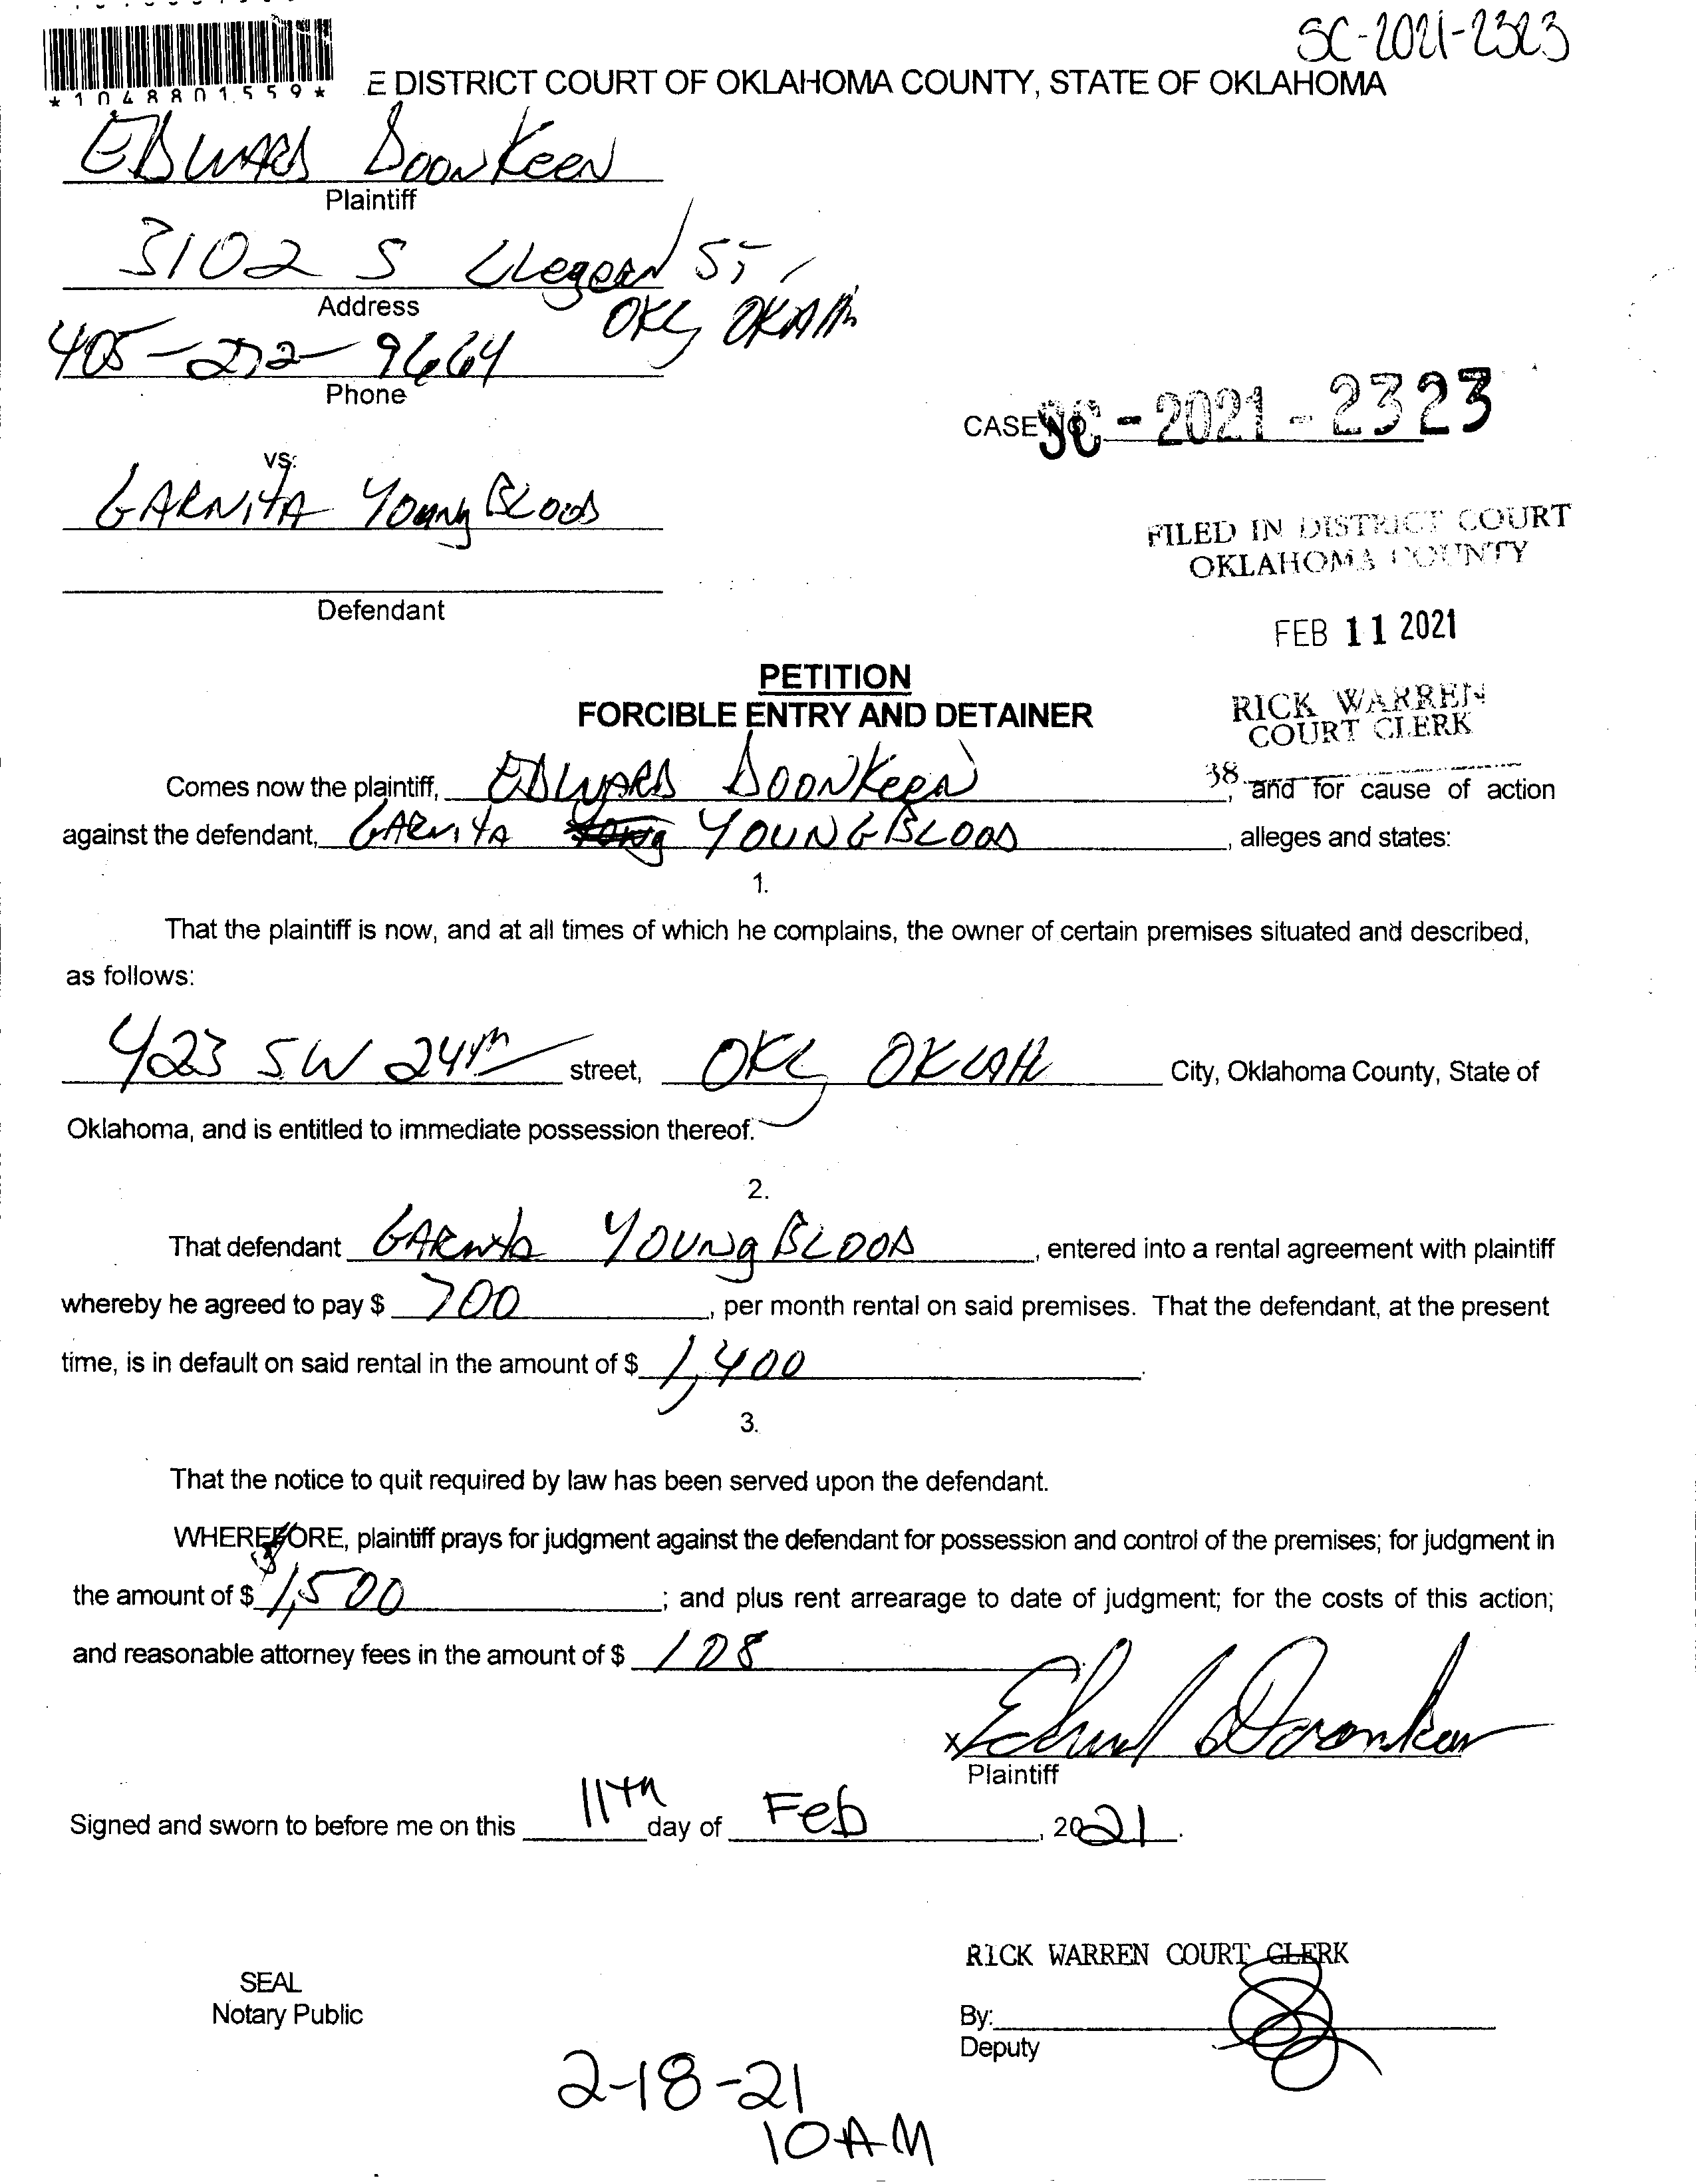 SC-2021-2323
*1048801559*
E DISTRICT COURT OF OKLAHOMA COUNTY, STATE OF OKLAHOMA
EDWARD DOONKEEN
Plaintiff
3102 S ST,
Address
OKC, OKLAH
405-272-9664
Phone
CASE NO. SC-2021-2323
vs:
GARNITA YOUNG BLOOD
FILED IN DISTRICT COURT
OKLAHOMA COUNTY
Defendant
FEB 11 2021
PETITION
RICK WARREN
COURT CLERK
FORCIBLE ENTRY AND DETAINER
38
Comes now the plaintiff, EDWARD DOONKEEN, and for cause of action
against the defendant, GARNITA YOUNGBLOOD, alleges and states:
1.
That the plaintiff is now, and at all times of which he complains, the owner of certain premises situated and described,
as follows:
423 SW 24th street, OKC, OKLAH City, Oklahoma County, State of
Oklahoma, and is entitled to immediate possession thereof.
2.
That defendant GARNITA YOUNGBLOOD, entered into a rental agreement with plaintiff
whereby he agreed to pay $ 700, per month rental on said premises. That the defendant, at the present
time, is in default on said rental in the amount of $ 1,400.
3.
That the notice to quit required by law has been served upon the defendant.
WHEREFORE, plaintiff prays for judgment against the defendant for possession and control of the premises; for judgment in
the amount of $ 1,500; and plus rent arrearage to date of judgment; for the costs of this action;
and reasonable attorney fees in the amount of $ 108
x Edward Doonkeen
Plaintiff
Signed and sworn to before me on this 11th day of Feb, 2021.
RICK WARREN COURT CLERK
SEAL
Notary Public
By:
Deputy
2-18-21
10AM